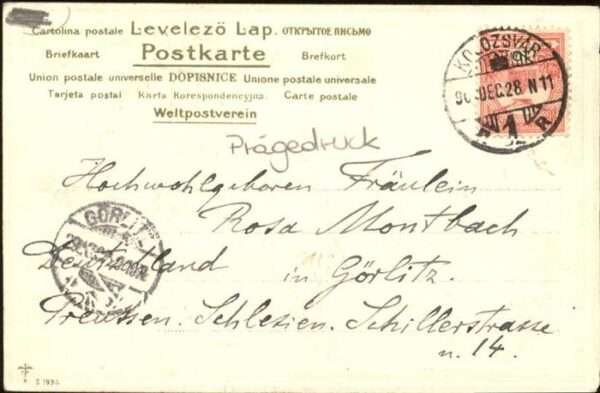 Cartolina postale Levelező Lap. ОТКРЫТОЕ ПИСЬМО
Briefkaart Postkarte Brefkort
Union postale universelle DOPISNICE Unione postale universale
Tarjeta postal Karta Korespondencyjna. Carte postale
Weltpostverein
KOLOZSVÁR
DEC. 28 N 11
Prägedruck
Hochwohlgeboren Fräulein
Rosa Montbach
Deutschland in Görlitz.
Preussen. Schlesien. Schillerstrasse
n. 14.
GÖRLITZ